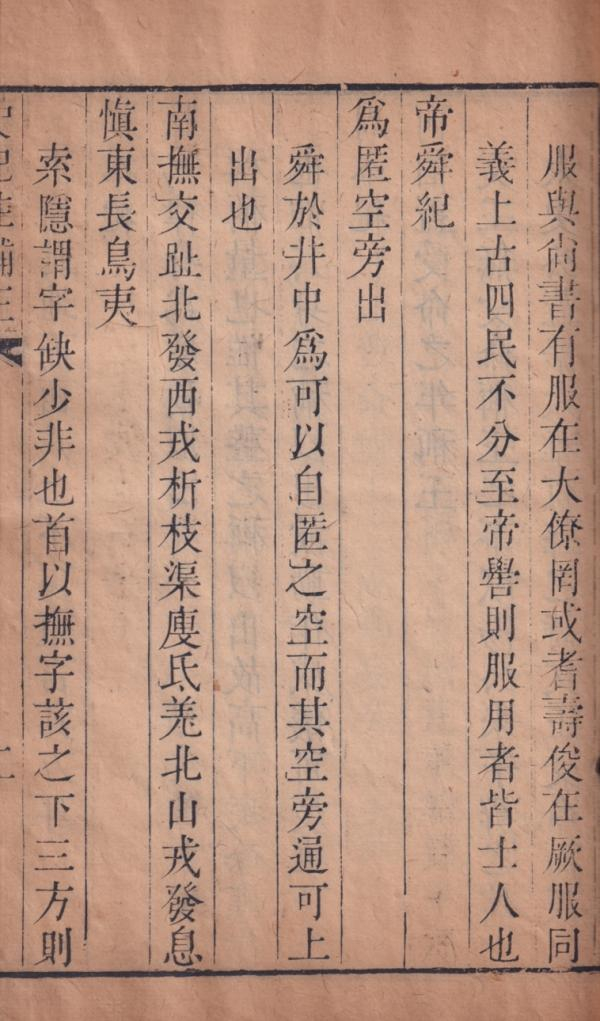 服與尚書有服在大僚罔或耆壽俊在厥服同
義上古四民不分至帝嚳則服用者皆士人也
帝舜紀
爲匿空旁出
舜於井中爲可以自匿之空而其空旁通可上
出也
南撫交趾北發西戎析枝渠廋氐羌北山戎發息
愼東長鳥夷
索隱謂字缺少非也首以撫字該之下三方則